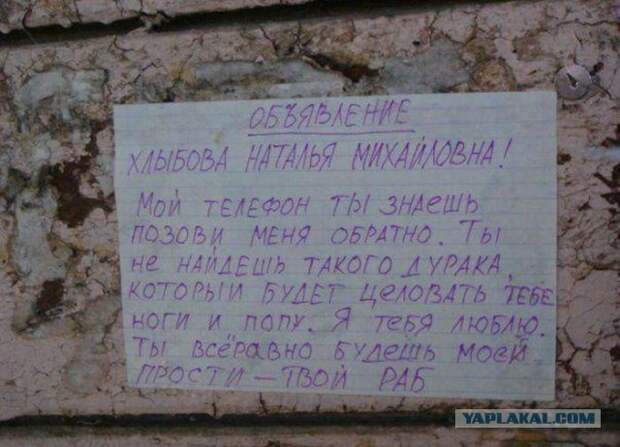 ОБЪЯВЛЕНИЕ
ХЛЫБОВА НАТАЛЬЯ МИХАЙЛОВНА!
МОЙ ТЕЛЕФОН ТЫ ЗНАЕШЬ
ПОЗОВИ МЕНЯ ОБРАТНО. ТЫ
НЕ НАЙДЕШЬ ТАКОГО ДУРАКА,
КОТОРЫЙ БУДЕТ ЦЕЛОВАТЬ ТЕБЕ
НОГИ И ПОПУ. Я ТЕБЯ ЛЮБЛЮ.
ТЫ ВСЁРАВНО БУДЕШЬ МОЕЙ
ПРОСТИ – ТВОЙ РАБ
YAPLAKAL.COM